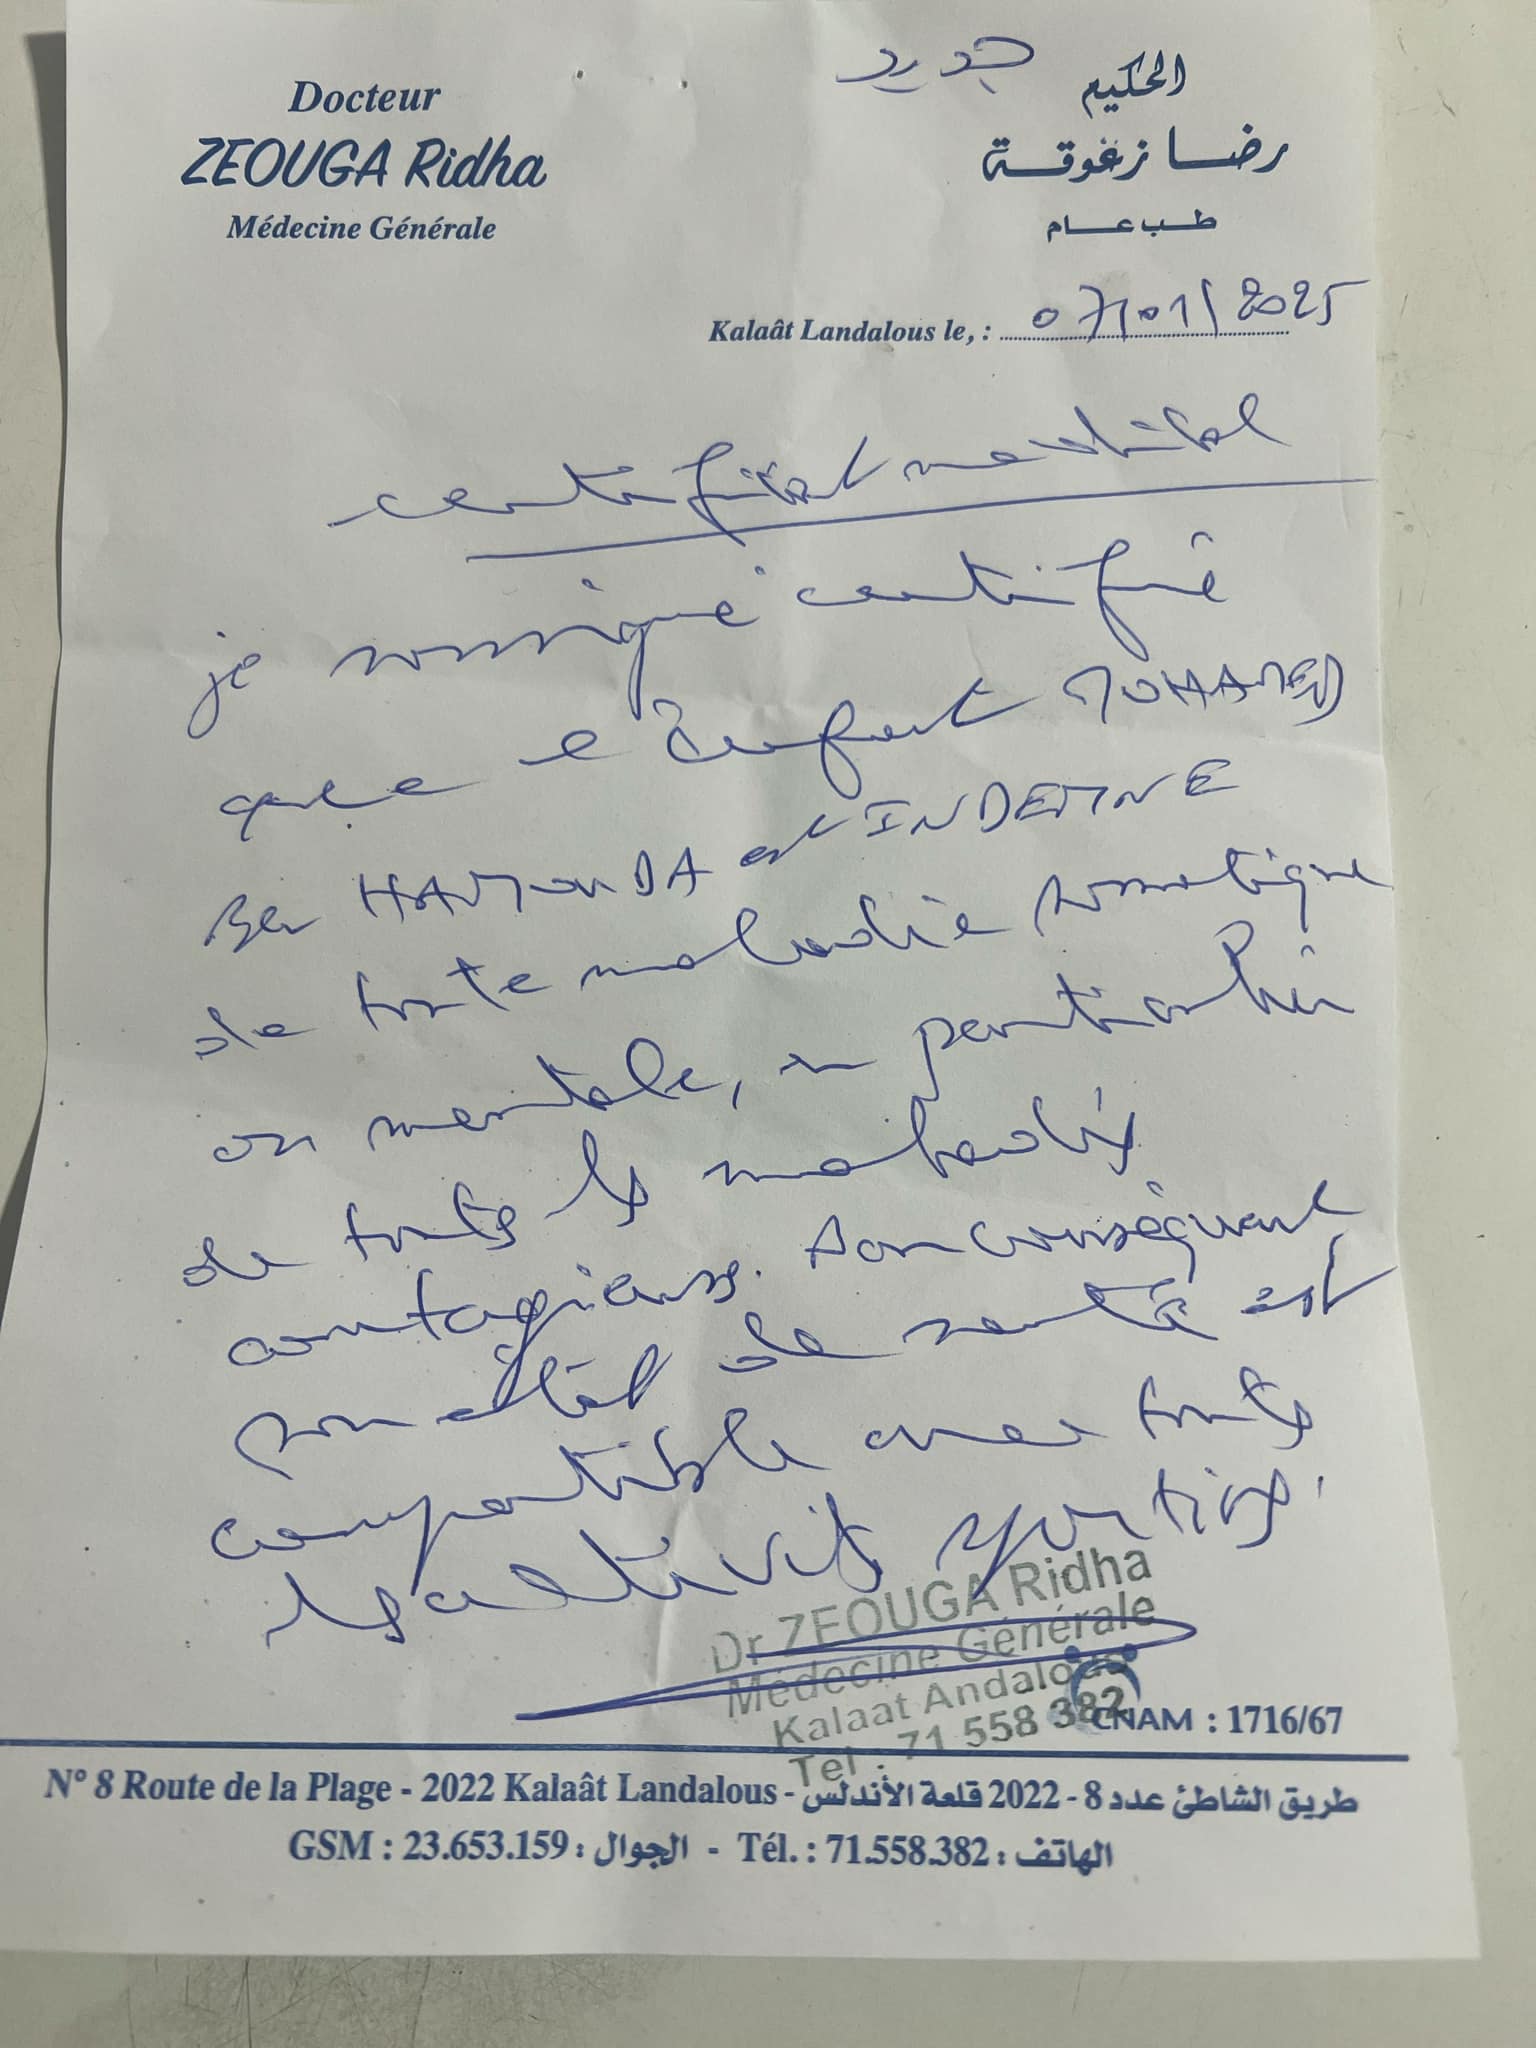 جديد
Docteur
ZEOUGA Ridha
Médecine Générale
الحكيم
رضا زغوقة
طب عام
Kalaât Landalous le, : 07/01/2025
certificat médical
je soussigné certifie
que l'enfant MOHAMED
Ben HAMOUDA est INDEMNE
de toute maladie somatique
ou mentale, en particulier
de toutes les maladies
contagieuses. Son conséquent
son état de santé est
compatible avec toutes
les activités sportives.
Dr ZEOUGA Ridha
Médecine Générale
Kalaat Andalous
Tel : 71 558 382
CNAM : 1716/67
N° 8 Route de la Plage - 2022 Kalaât Landalous - طريق الشاطئ عدد 8 - 2022 قلعة الأندلس
GSM : 23.653.159 : الجوال - Tél. : 71.558.382 : الهاتف